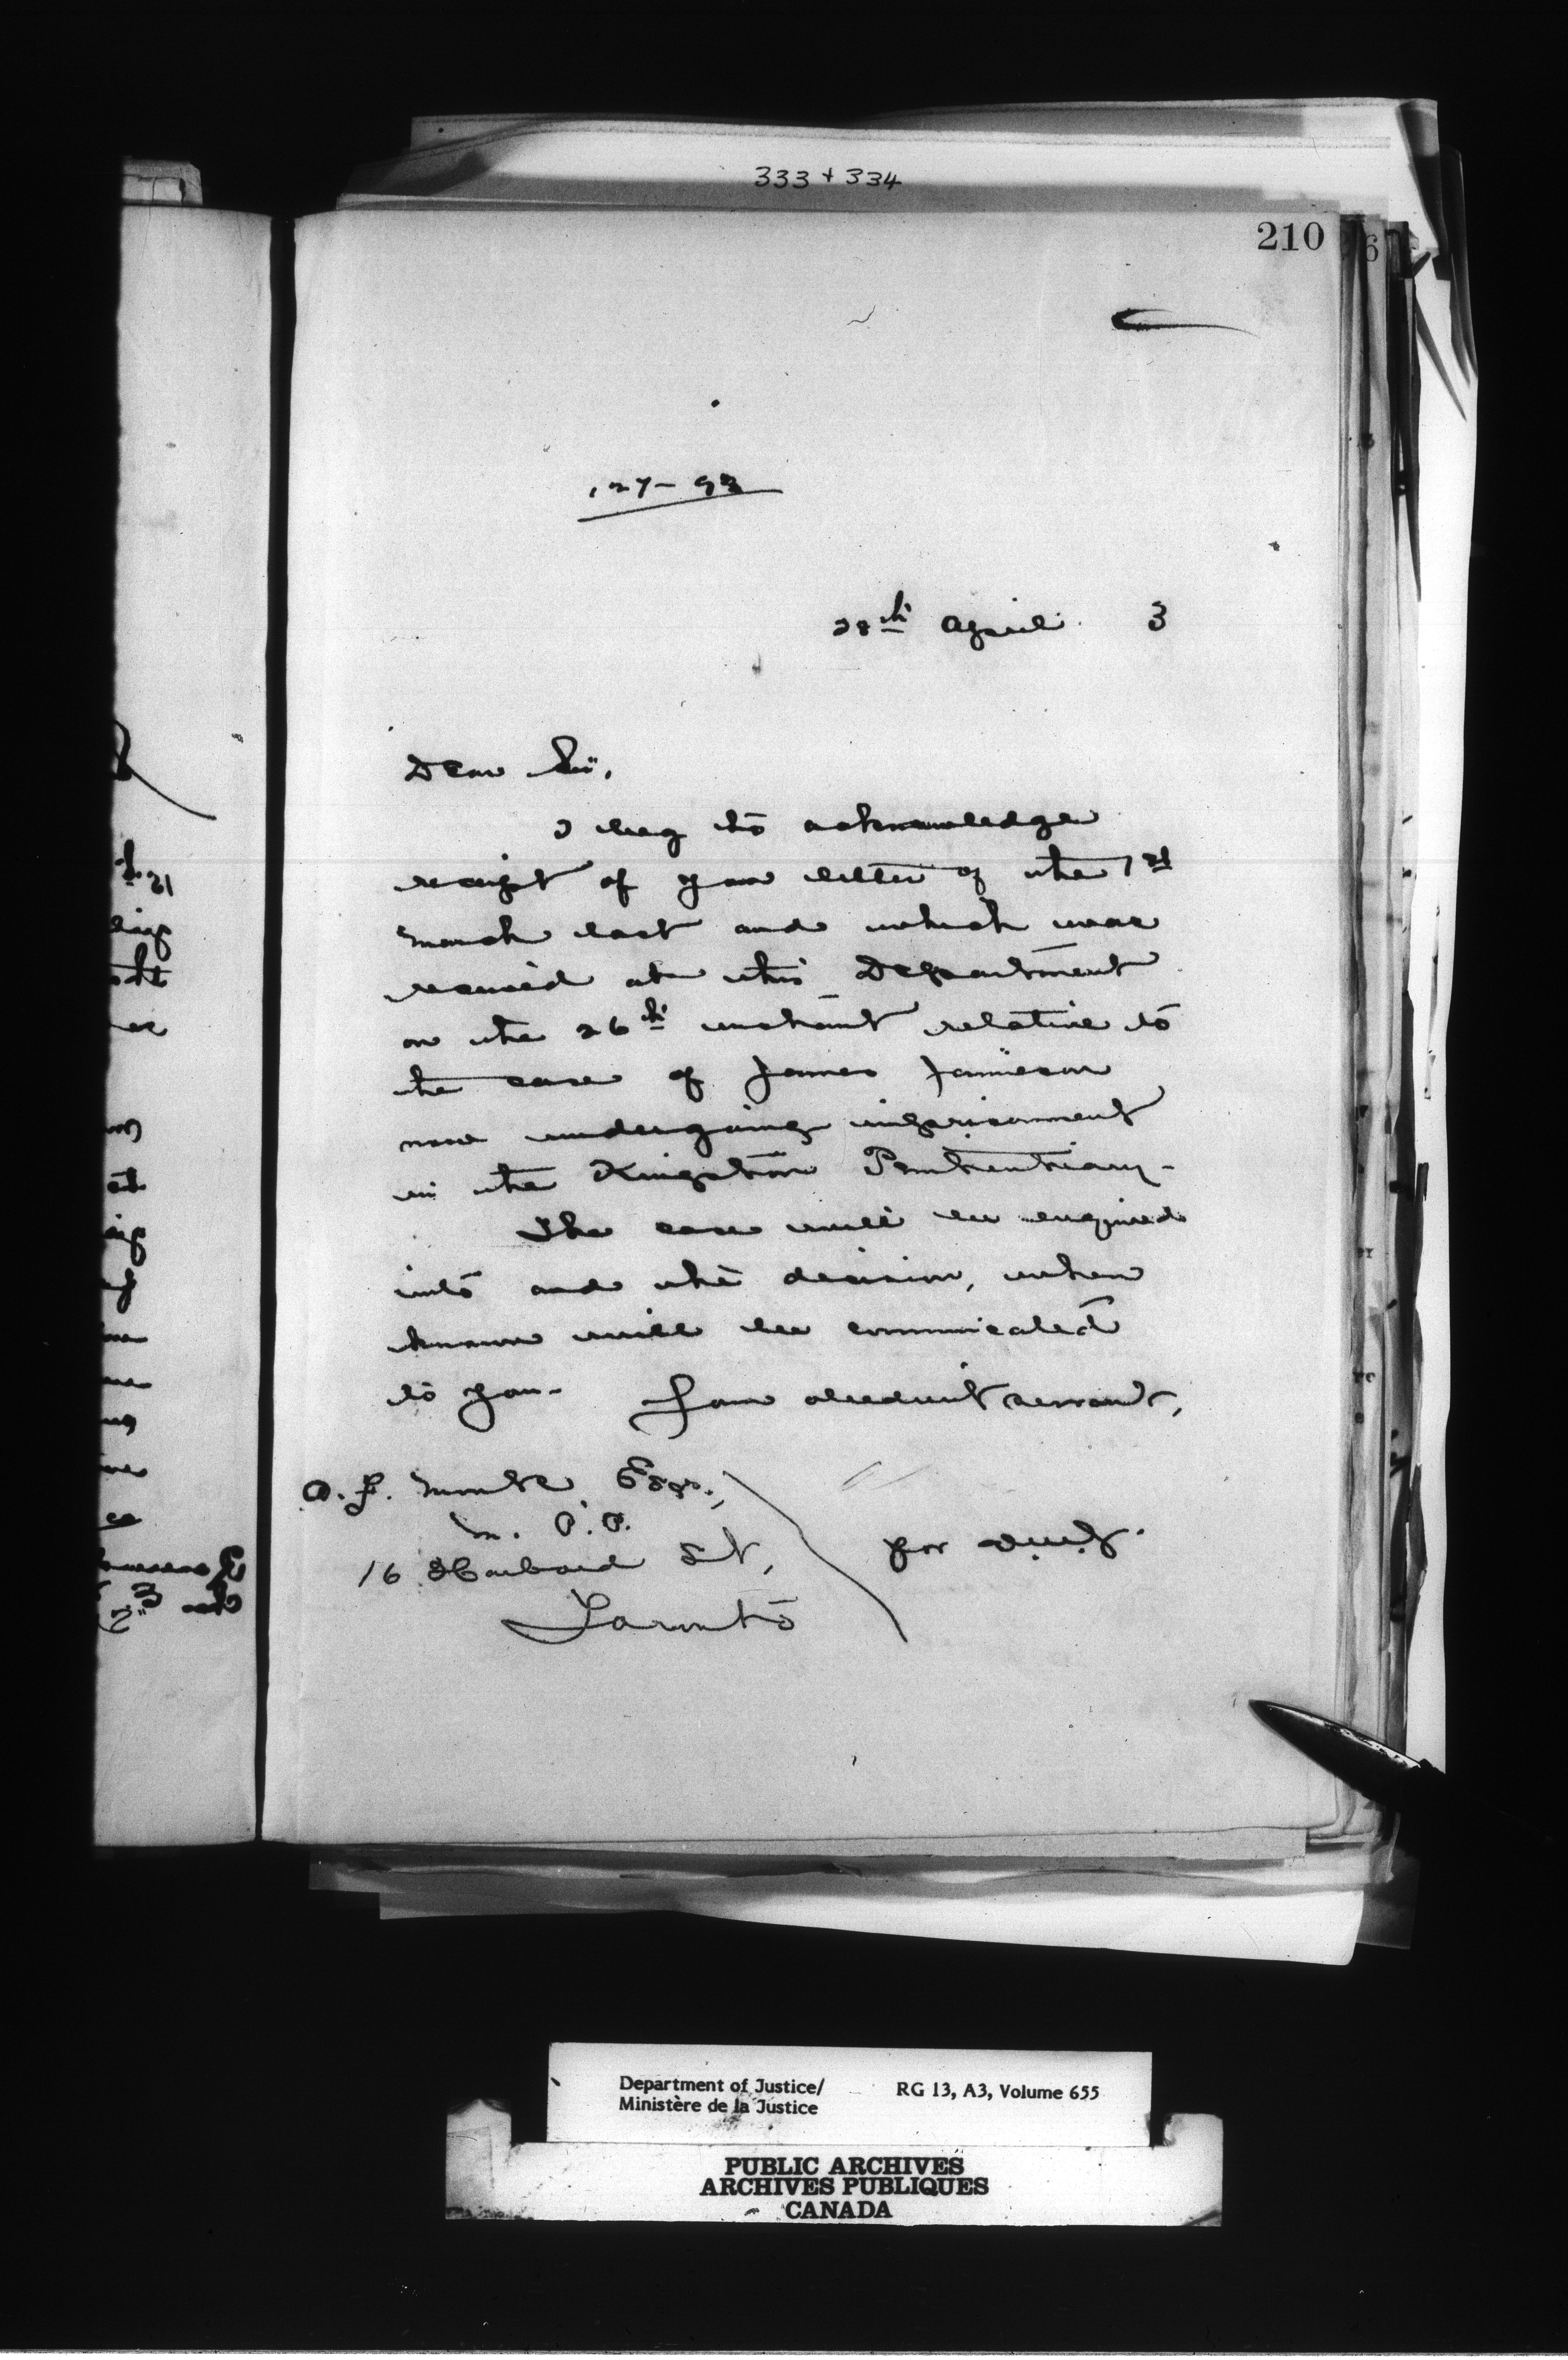 333 + 334
210
127-93
28th April 3
Dear Sir,
I beg to acknowledge
receipt of your letter of the 1st
March last and which was
received at this Department
on the 26th instant relative to
the case of James Jamieson
now undergoing imprisonment
in the Kingston Penitentiary-
The case will be enquired
into and the decision, when
known will be communicated
to you- Your obedient servant,
Esqr.,
M. P. P.
16 Harbord St,
Toronto
for
Department of Justice/
Ministère de la Justice
RG 13, A3, Volume 655
PUBLIC ARCHIVES
ARCHIVES PUBLIQUES
CANADA